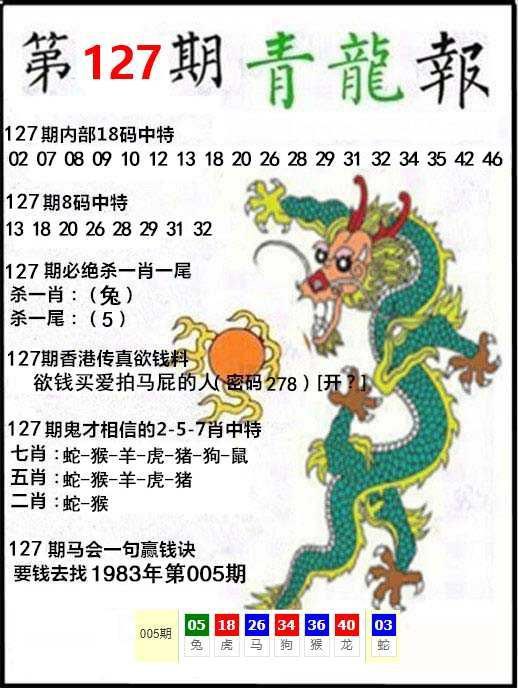 第127期 青龍報
127期内部18码中特
02 07 08 09 10 12 13 18 20 26 28 29 31 32 34 35 42 46
127期8码中特
13 18 20 26 28 29 31 32
127期必绝杀一肖一尾
杀一肖：(兔)
杀一尾：(5)
127期香港传真欲钱料
欲钱买爱拍马屁的人(密码278)[开?]
127期鬼才相信的2-5-7肖中特
七肖：蛇-猴-羊-虎-猪-狗-鼠
五肖：蛇-猴-羊-虎-猪
二肖：蛇-猴
127期马会一句赢钱诀
要钱去找1983年第005期
005期 05 18 26 34 36 40 03
兔 虎 马 狗 猴 龙 蛇